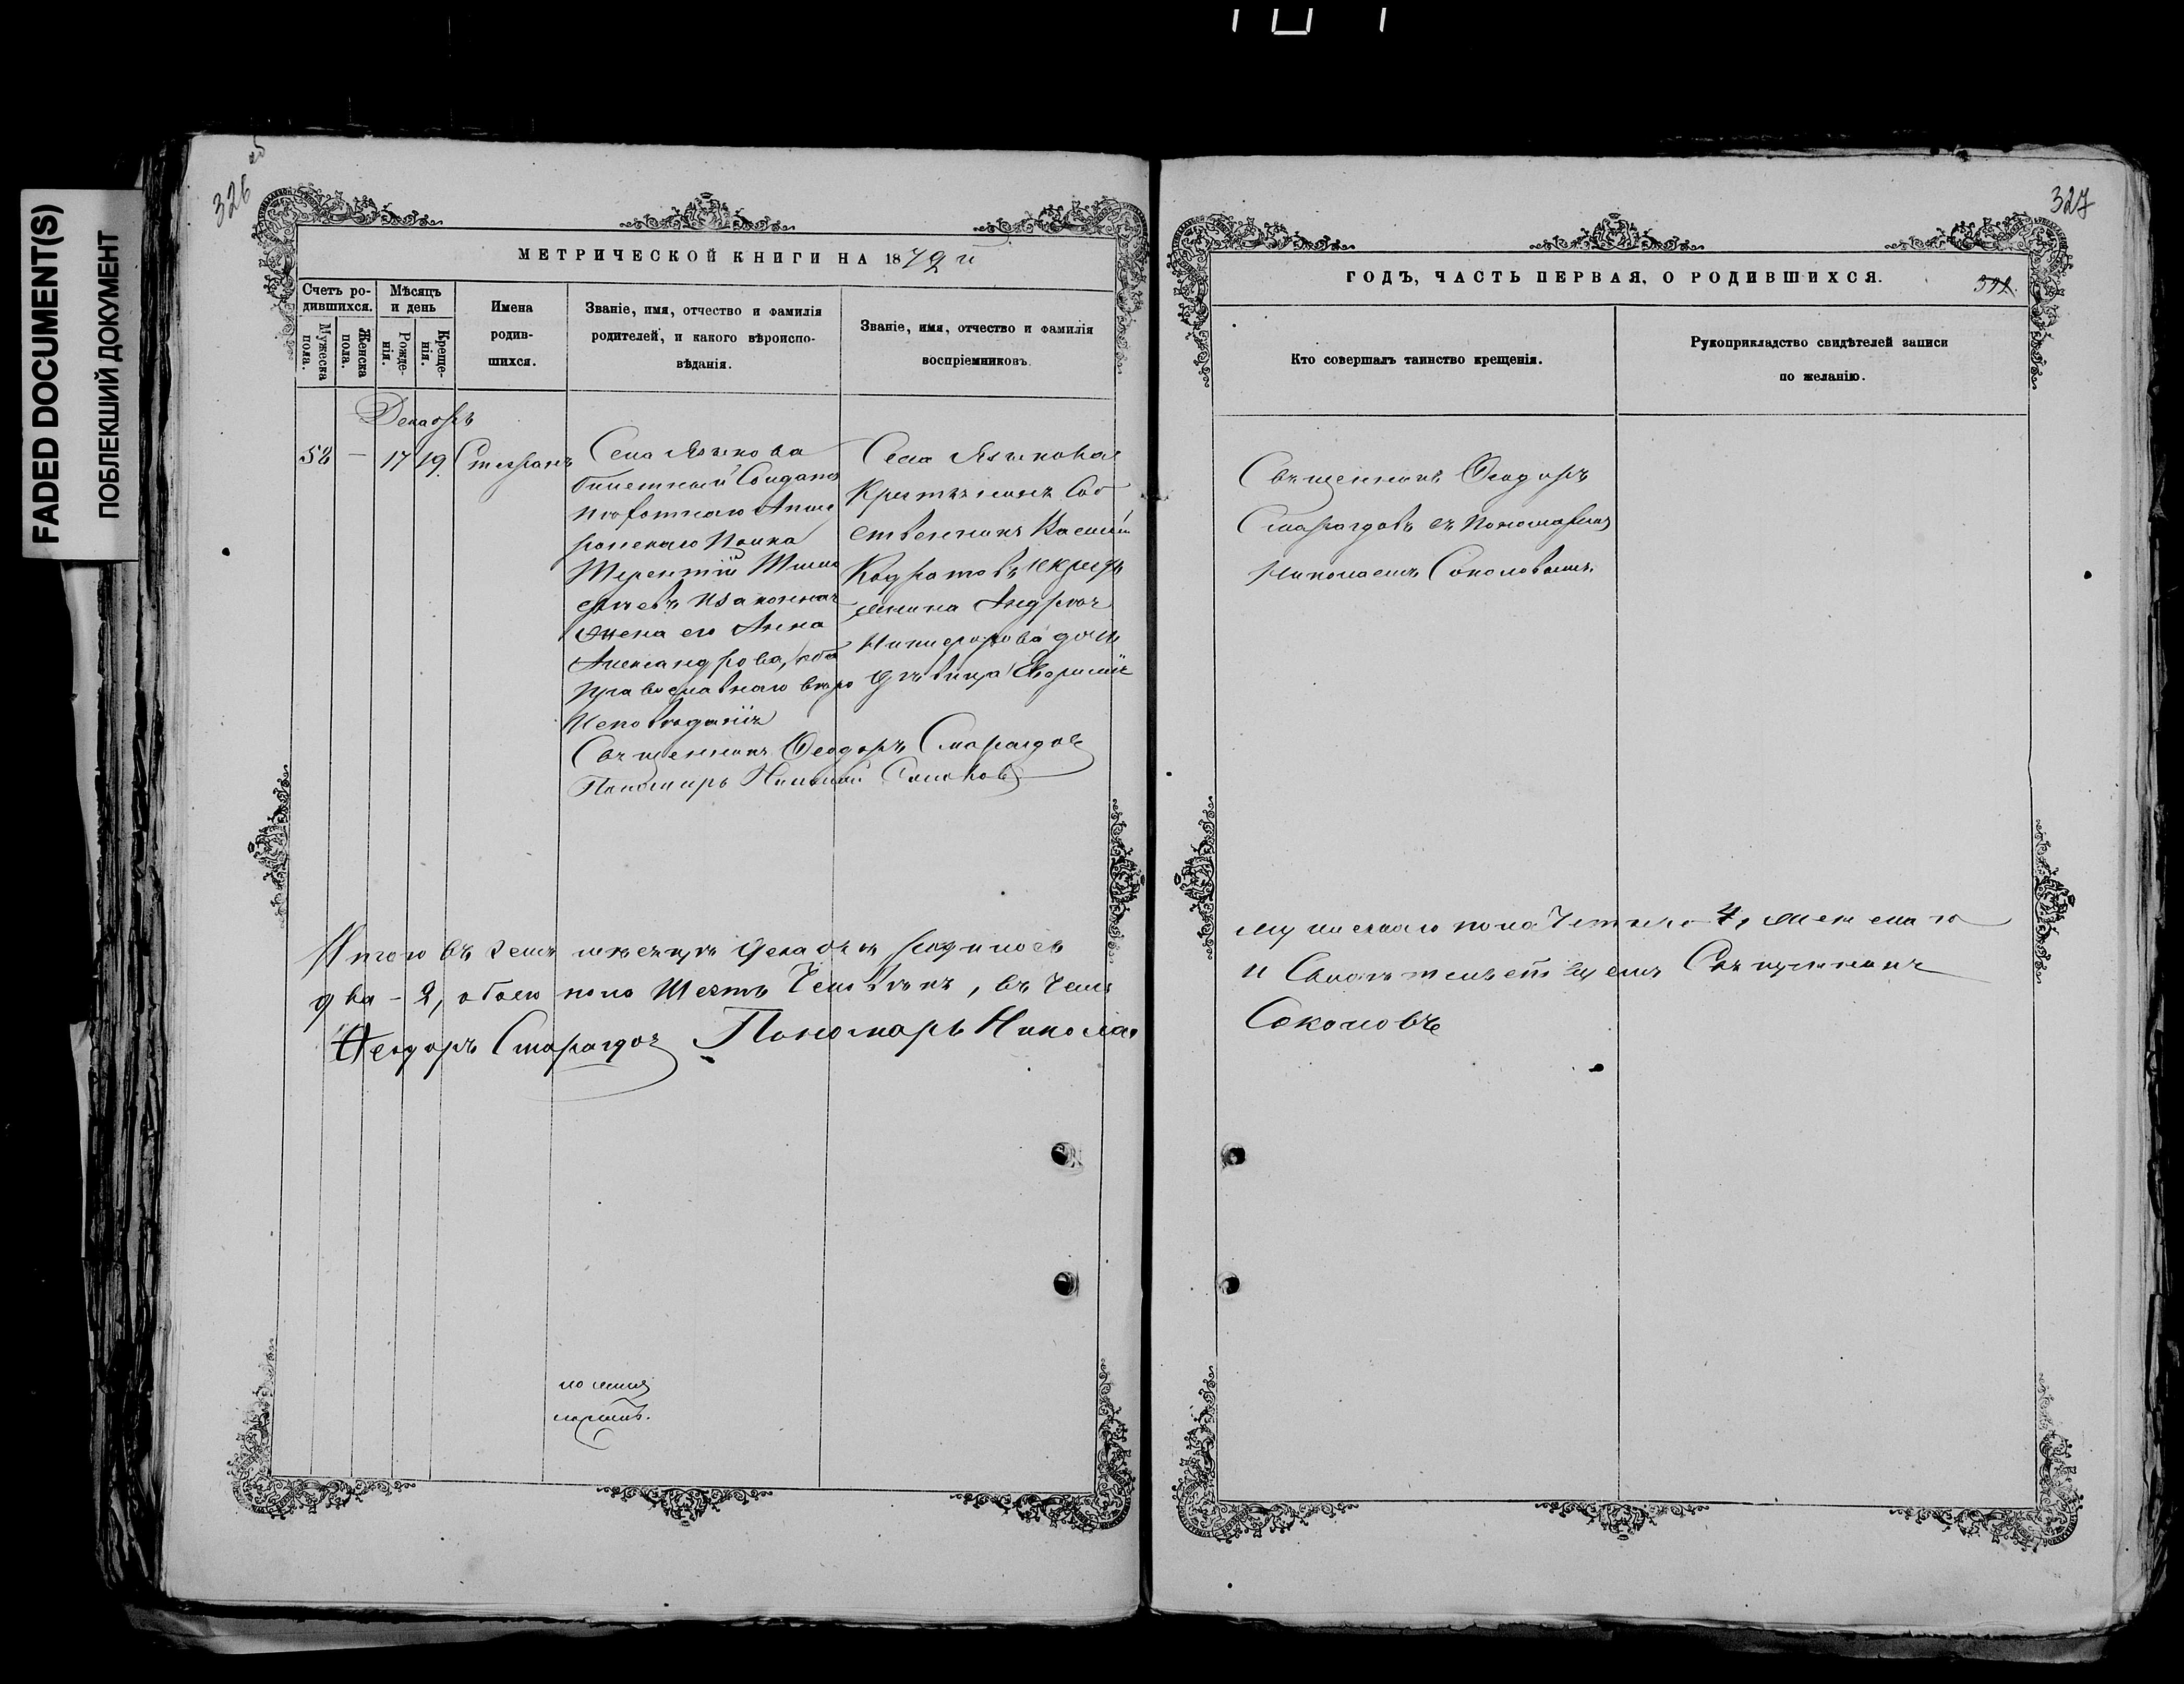 FADED DOCUMENT(S)
ПОБЛЕКШИЙ ДОКУМЕНТ
326 об
МЕТРИЧЕСКОЙ КНИГИ НА 1879 й
Счетъ ро-
дившихся.
Мужеска
пола.
Женска
пола.
Мѣсяцъ
и день
Рожде-
нія.
Креще-
нія.
Имена
родив-
шихся.
Званіе, имя, отчество и фамилія
родителей, и какого вѣроиспо-
вѣданія.
Званіе, имя, отчество и фамилія
воспріемниковъ.
Декабрь
58 — 17 19 Стефанъ
Села Языкова
билетный Солдатъ
пѣхотнаго Апше
ронскаго Полка
Терентій Тимо
ѳеевъ и законная
жена его Анна
Александрова, оба
православнаго вѣро
исповѣданія
Села Языкова
Крестьянинъ Соб
ственникъ Василій
и крестъ
янина Андрея
Никифорова дочь
дѣвица
Священникъ Ѳеодоръ Смарагдовъ
Пономарь Николай Соколовъ
Итого въ семъ мѣсяцѣ Декабрѣ родилось
два - 2, обоего пола Шесть Человѣкъ, въ чемъ
Ѳеодоръ Смарагдовъ Пономарь Николай
327
ГОДЪ, ЧАСТЬ ПЕРВАЯ, О РОДИВШИХСЯ.
Кто совершалъ таинство крещенія.
Рукоприкладство свидѣтелей записи
по желанію.
Священникъ Ѳеодоръ
Смарагдовъ съ пономаремъ
Николаемъ Соколовымъ.
мужескаго пола Четыре 4, женскаго
и Свидѣтельствуемъ Священникъ
Соколовъ